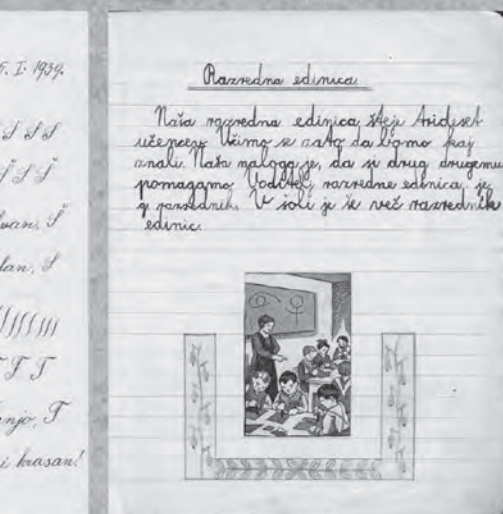 5. I. 1939.
S S S
Š S Š
S
T F T
T
i krasan!
Razredna edinica
Naša razredna edinica šteje trideset
učencev. Učimo se zato da bomo kaj
znali. Naša naloga je, da si drug drugemu
pomagamo. Voditelj razredne edinica je
g. razrednik. V šoli je še več razrednih
edinic.